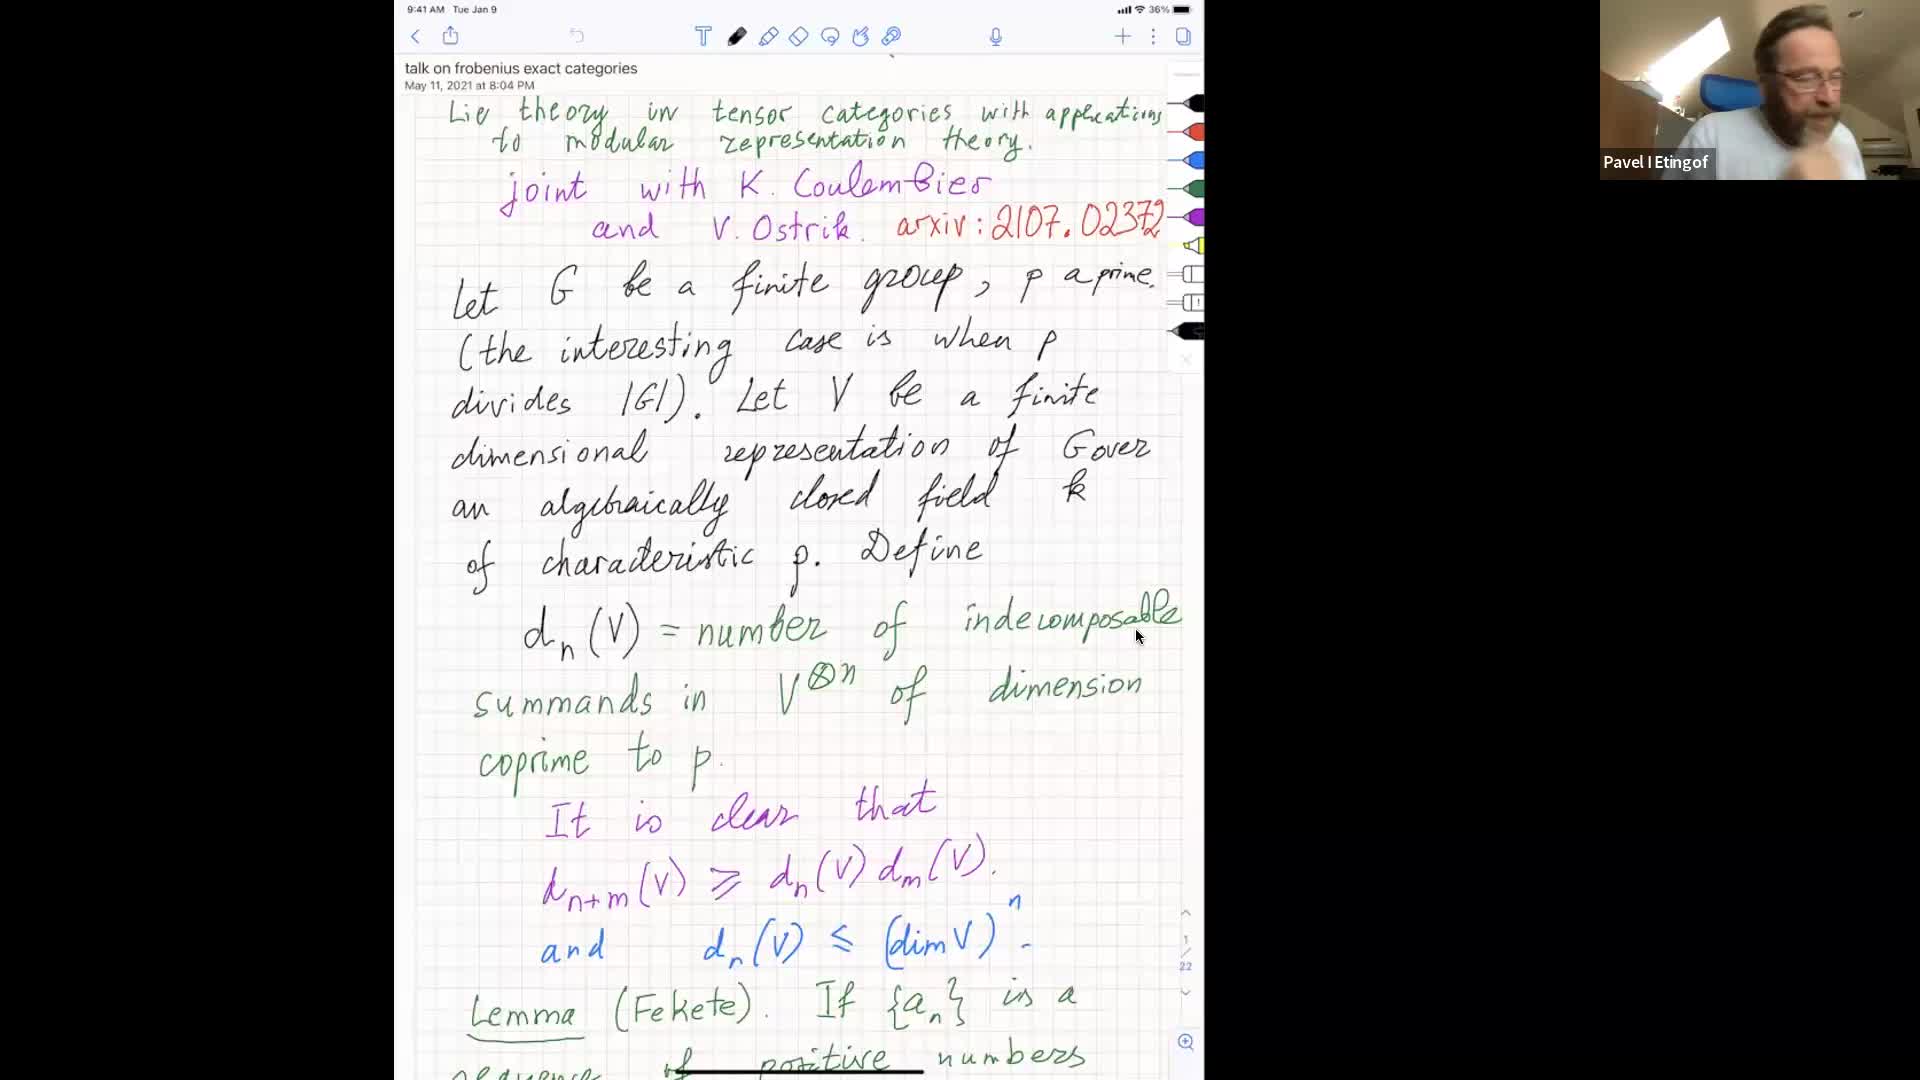 9:41 AM Tue Jan 9
36%
talk on frobenius exact categories
May 11, 2021 at 8:04 PM
Lie theory in tensor categories with applications
to modular representation theory.
joint with K. Coulembier
and V. Ostrik. arxiv: 2107.02372
Let G be a finite group, p a prime.
(the interesting case is when p
divides |G|). Let V be a finite
dimensional representation of G over
an algebraically closed field k
of characteristic p. Define
dₙ(V) = number of indecomposable
summands in V^⊗n of dimension
coprime to p.
It is clear that
dₙ₊ₘ(V) ⩾ dₙ(V) dₘ(V).
and dₙ(V) ≤ (dim V)ⁿ.
Lemma (Fekete). If {aₙ} is a
sequence of positive numbers
1
22
Pavel I Etingof